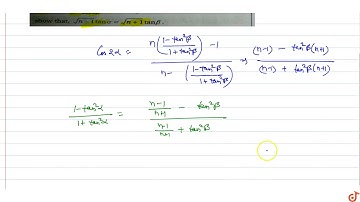 show that, √n+1 tan α = √n+1 tan β.
Cos 2α = n((1-tan²β)/(1+tan²β)) -1 / n- ((1-tan²β)/(1+tan²β)) ⇒ (n-1) - tan²β(n+1) / (n-1) + tan²β(n+1)
1-tan²α / 1+tan²α = (n-1)/(n+1) - tan²β / (n-1)/(n+1) + tan²β